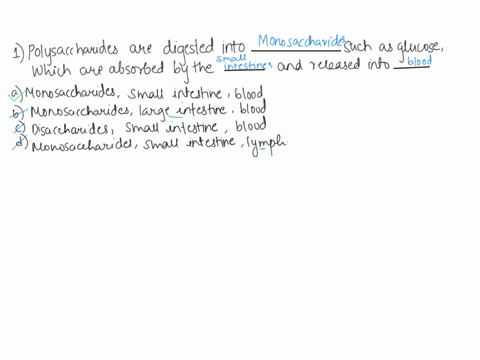 1) Polysaccharides are digested into Monosaccharides such as glucose,
Which are absorbed by the small intestines and released into blood
a) Monosaccharides, Small intestine, blood
b) Monosaccharides, large intestine, blood
c) Disaccharides, Small intestine, blood
d) Monosaccharides, small intestine, lymph.